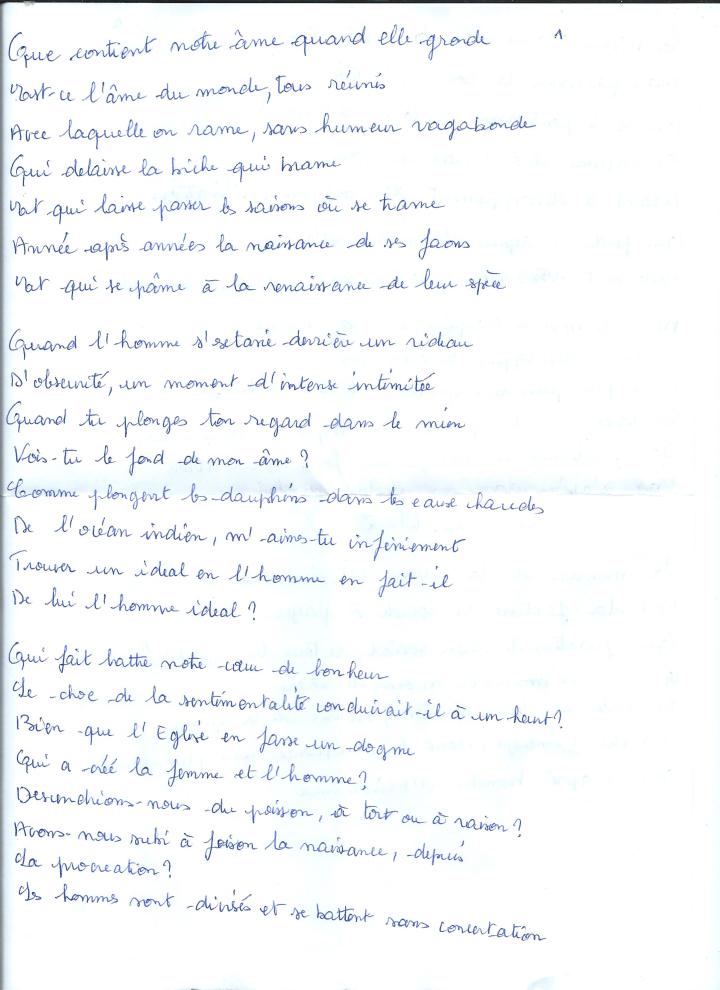 Que contient notre âme quand elle gronde 1
Est-ce l'âme du monde, tous réunis
Avec laquelle on rame, sans humeur vagabonde
Qui délaisse la biche qui brame
Est qui laisse passer les saisons où se trame
Année après années la naissance de ses faons
Est qui se pâme à la renaissance de leur espèce
Quand l'homme s'extasie derrière un rideau
D'obscurité, un moment d'intense intimitée
Quand tu plonges ton regard dans le mien
Vois-tu le fond de mon âme ?
Comme plongent les dauphins dans les eaux chaudes
De l'océan indien, m'aimes-tu infiniement
Trouver un idéal en l'homme en fait-il
De lui l'homme idéal ?
Qui fait battre notre cœur de bonheur
Le choc de la sentimentalité conduirait-il à un heurt ?
Bien que l'Eglise en fasse un dogme
Qui a créé la femme et l'homme ?
Descendrions-nous du poisson, à tort ou à raison ?
Avons-nous subi à foison la naissance, depuis
La procreation ?
Les hommes sont divisés et se battent sans concertation